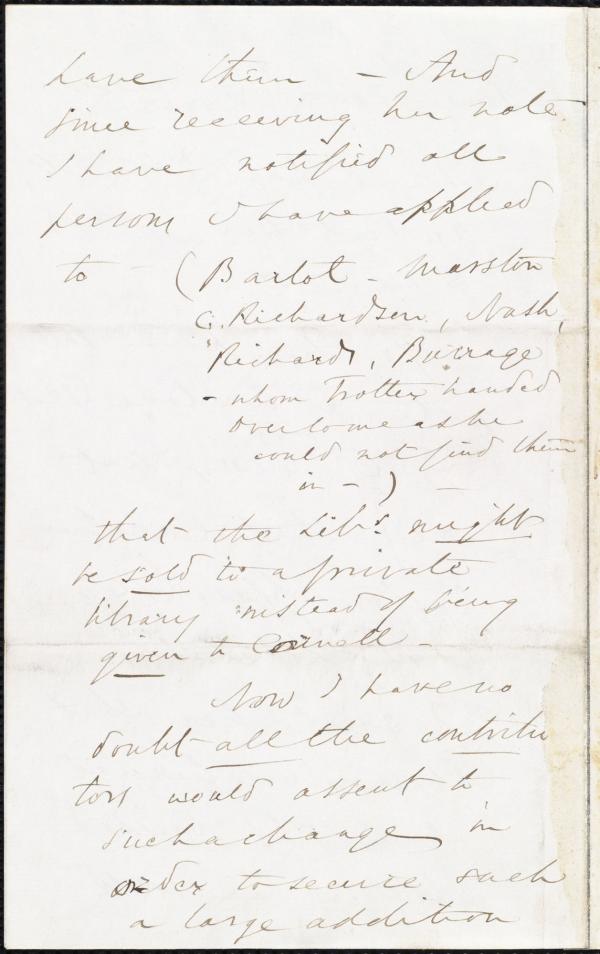 have them - And
since receiving her note
I have notified all
persons I have applied
to (Bartol - Marston
C. Richardson, Nash,
Richards, Burrage
- whom Trotter handed
over to me as he
could not find them
in -)
that the Libs. might
be sold to a private
library instead of being
given to Cornell -
Now I have no
doubt all the contribu
tors would assent to
such a change in
order to secure such
a large addition